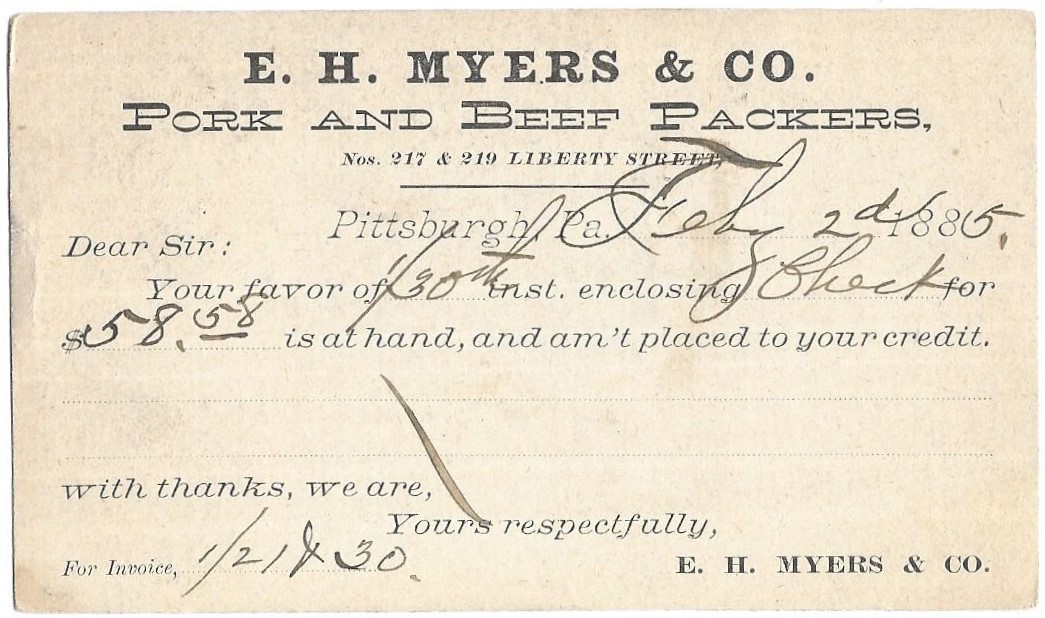 E. H. MYERS & CO.
PORK AND BEEF PACKERS,
Nos. 217 & 219 LIBERTY STREET,
Pittsburgh, Pa. Feby 2d 1885.
Dear Sir:
Your favor of 1/30th inst. enclosing Check for
$58.58 is at hand, and am't placed to your credit.
with thanks, we are,
Yours respectfully,
For Invoice, 1/21 & 30.
E. H. MYERS & CO.